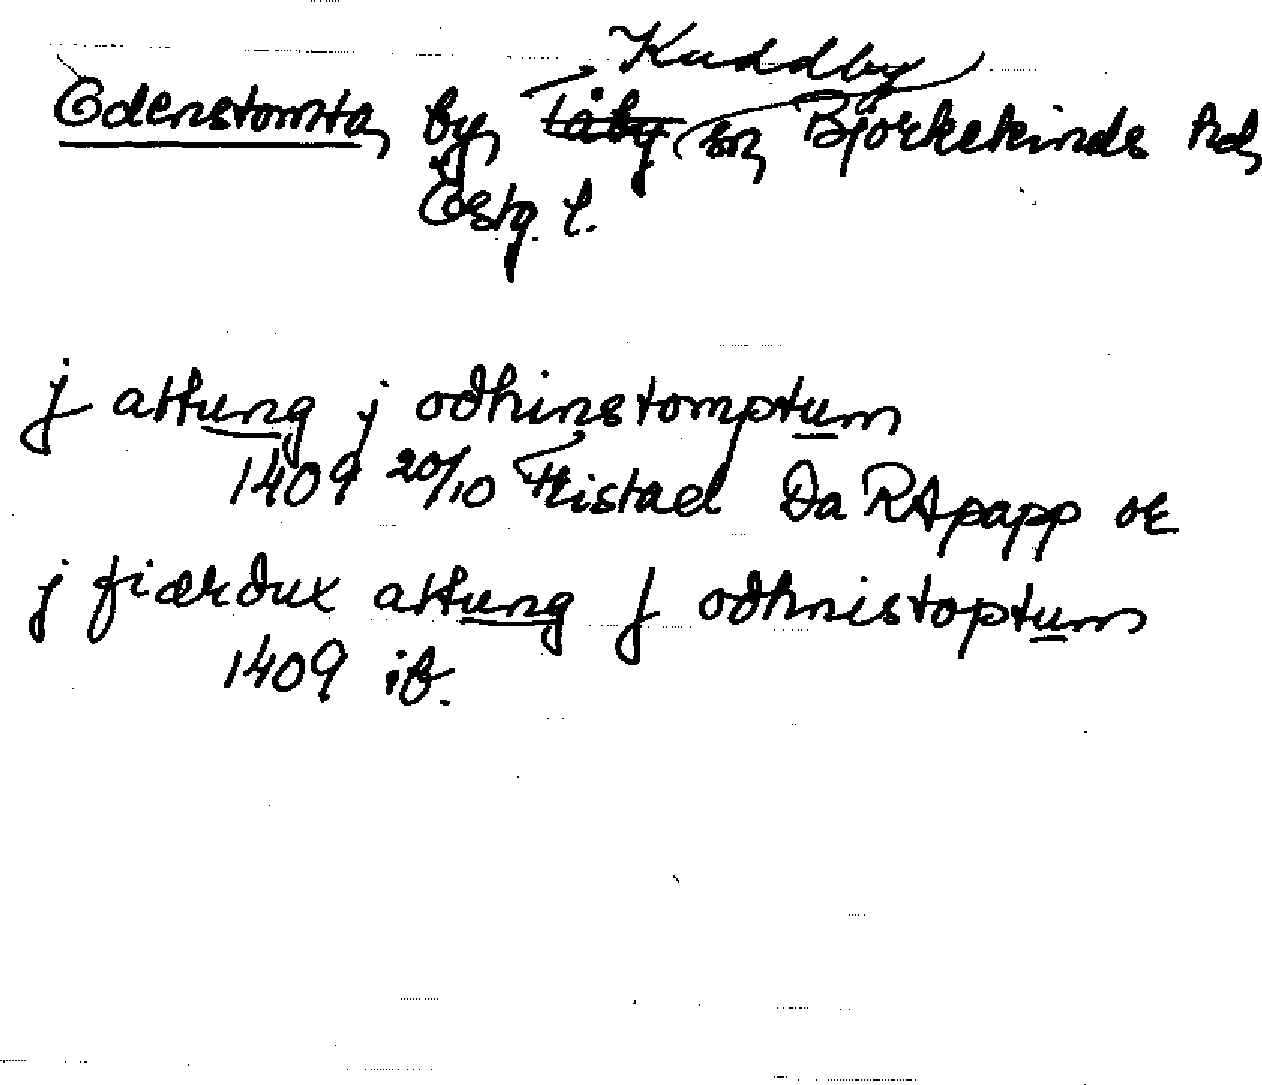 Kuddby
Odenstomta, by, Tåby sn, Björkekinds hd,
Östg. l.
j attung j odhinstomptum
1409 20/10 Tistad Da RApapp or
j fiærdux attung j odhnistoptum
1409 ib.